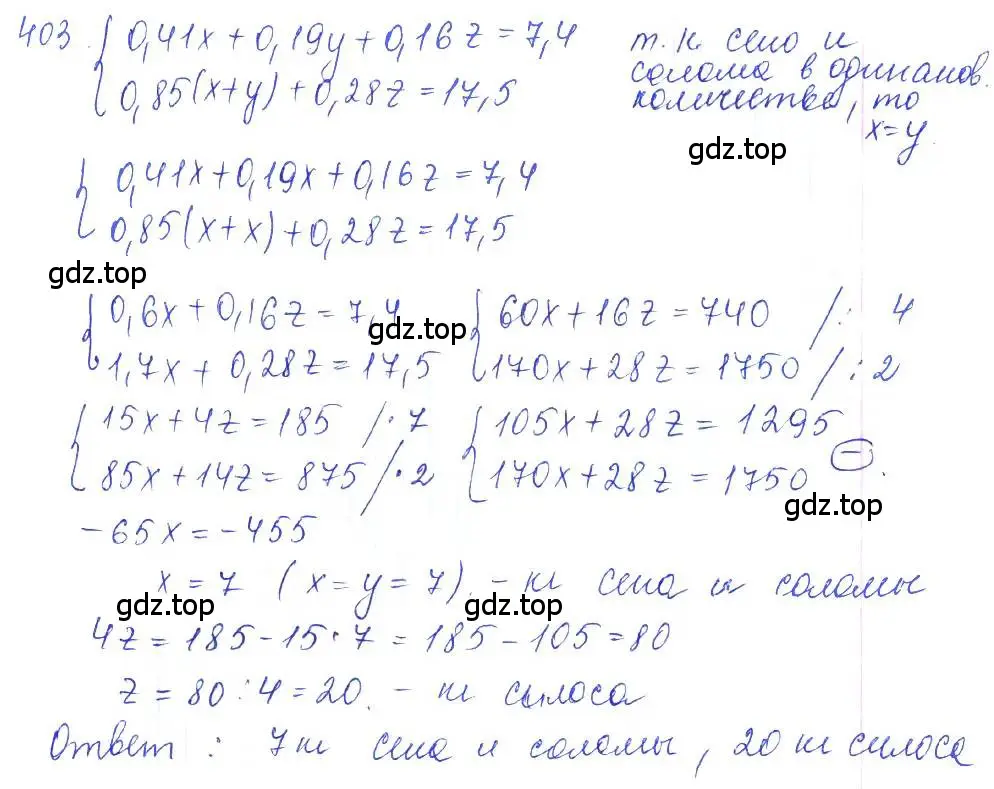 403 { 0,41x + 0,19y + 0,16z = 7,4 т. к. сено и
0,85(x+y) + 0,28z = 17,5 солома в одинаков.
количестве, то
x=y.
gdz.top
{ 0,41x+0,19x+0,16z = 7,4
0,85(x+x)+0,28z = 17,5
gdz.top
{ 0,6x+0,16z = 7,4 { 60x+16z = 740 /: 4
gdz.top
1,7x + 0,28z = 17,5 170x+28z = 1750 /: 2
{ 15x+4z = 185 /·7 { 105x+28z = 1295
85x+14z = 875 /·2 170x+28z = 1750 (−).
gdz.top
-65x = -455
x = 7 (x=y=7) - кг сена и соломы
gdz.top gdz.top
4z = 185-15·7 = 185-105 = 80
z = 80:4 = 20. - кг силоса
Ответ: 7 кг сена и соломы, 20 кг силоса